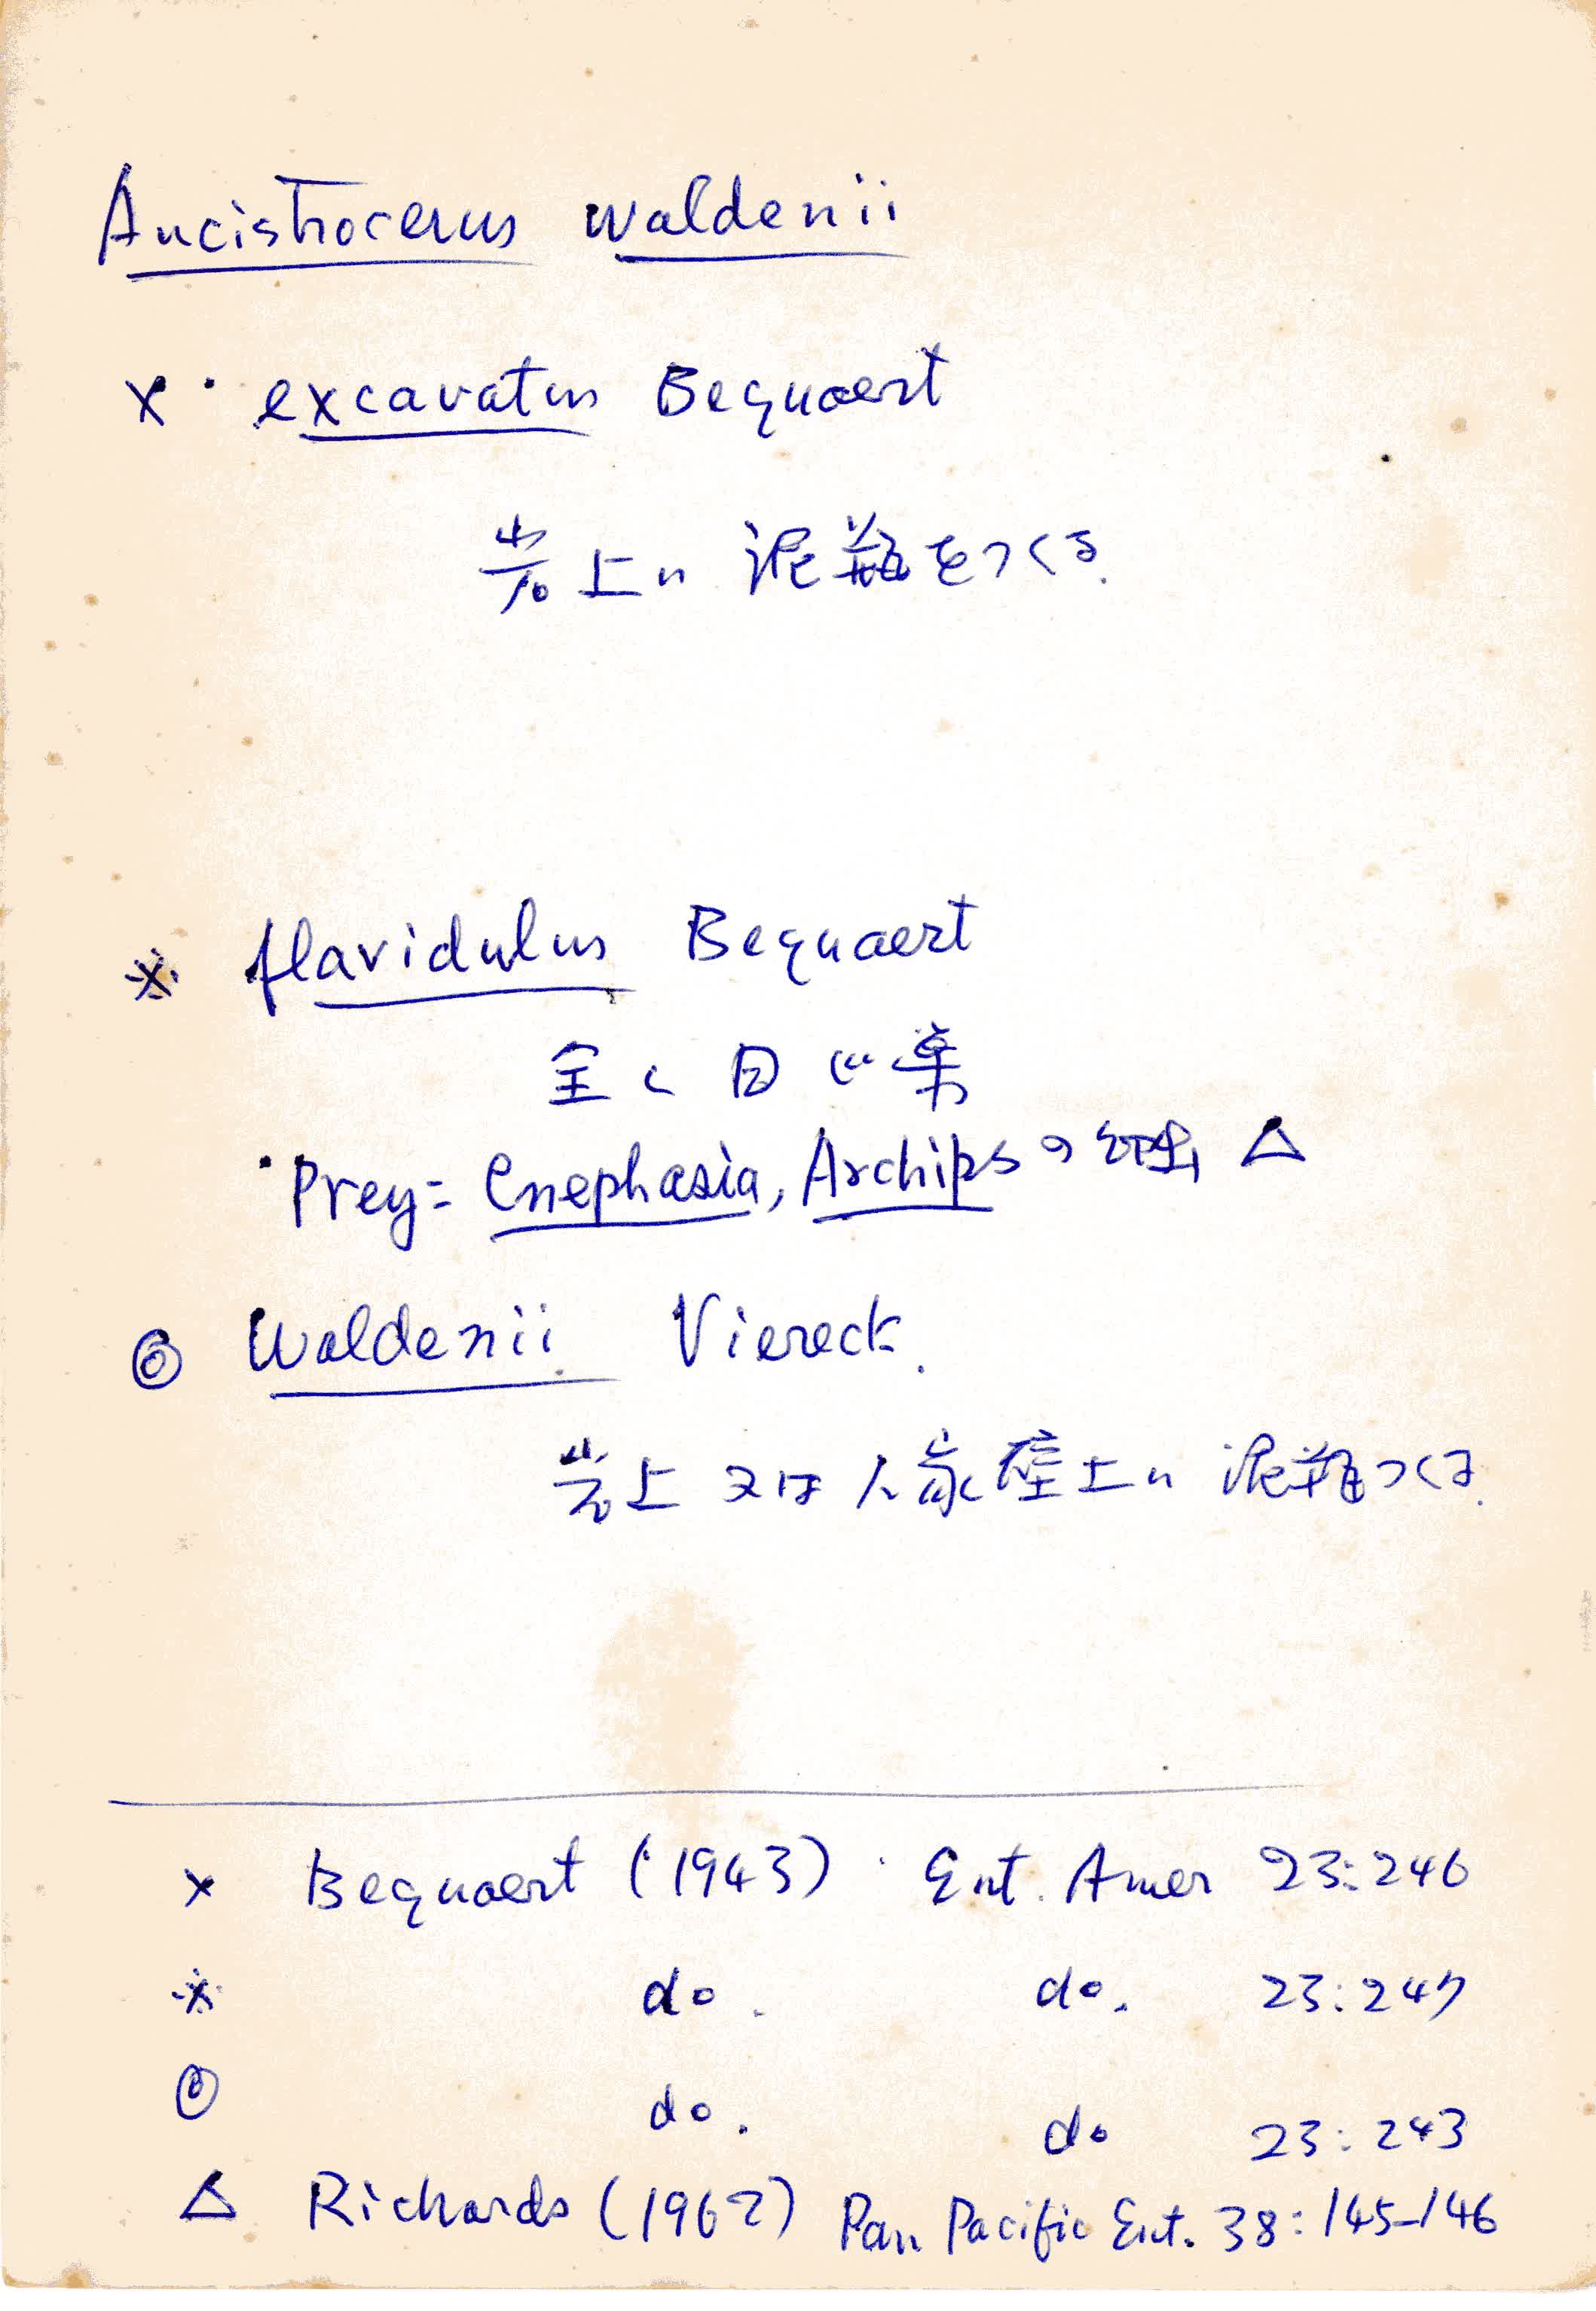 Ancistrocerus waldenii
× ・ excavatus Bequaert
岩上に 泥瓶をつくる.
※ flavidulus Bequaert
全く同じ巣
・Prey= Cnephasia, Archipsの幼虫 △
◎ Waldenii Viereck.
岩上 又は 人家壁上に 泥瓶つくる.
× Bequaert (1943) Ent. Amer 23:246
※ do. do. 23:247
◎ do. do 23:243
△ Richards (1962) Pan Pacific Ent. 38:145-146